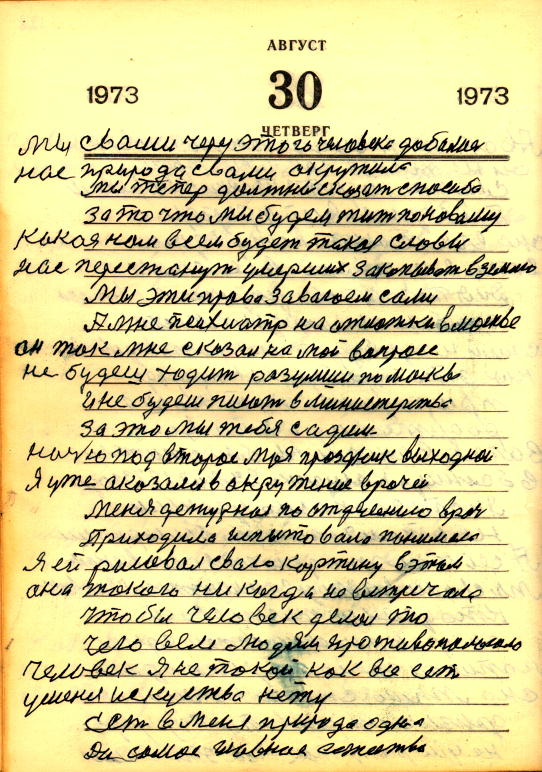 АВГУСТ
1973 30 1973
ЧЕТВЕРГ
Мы свами через этого человека добался
нас природа свами окружила
мы тепер должны сказат способо
зато что мы будем жит поновому
какоя нам всем будет такая словы
нас перестанут умерших закопыват в землю
Мы эти права заваюем сами
А мне психиатр на
он так мне сказал на мой вопрос
не будеш ходит по Москве
и не будеш писат в Министерства
за это мы тебя садим
начю под второе мая праздник выходной
Я уже оказался в окружение врачей
меня дежурная по отделению врач
Приходила испытовала понимала
Я ей рисовал сваю картину в этом
она такого никогда не встречала
чтобы человек делал то
чего всем людям
человек я не такой как все ест
уменя искуства нету
ест в меня природа одна
Да самое главное